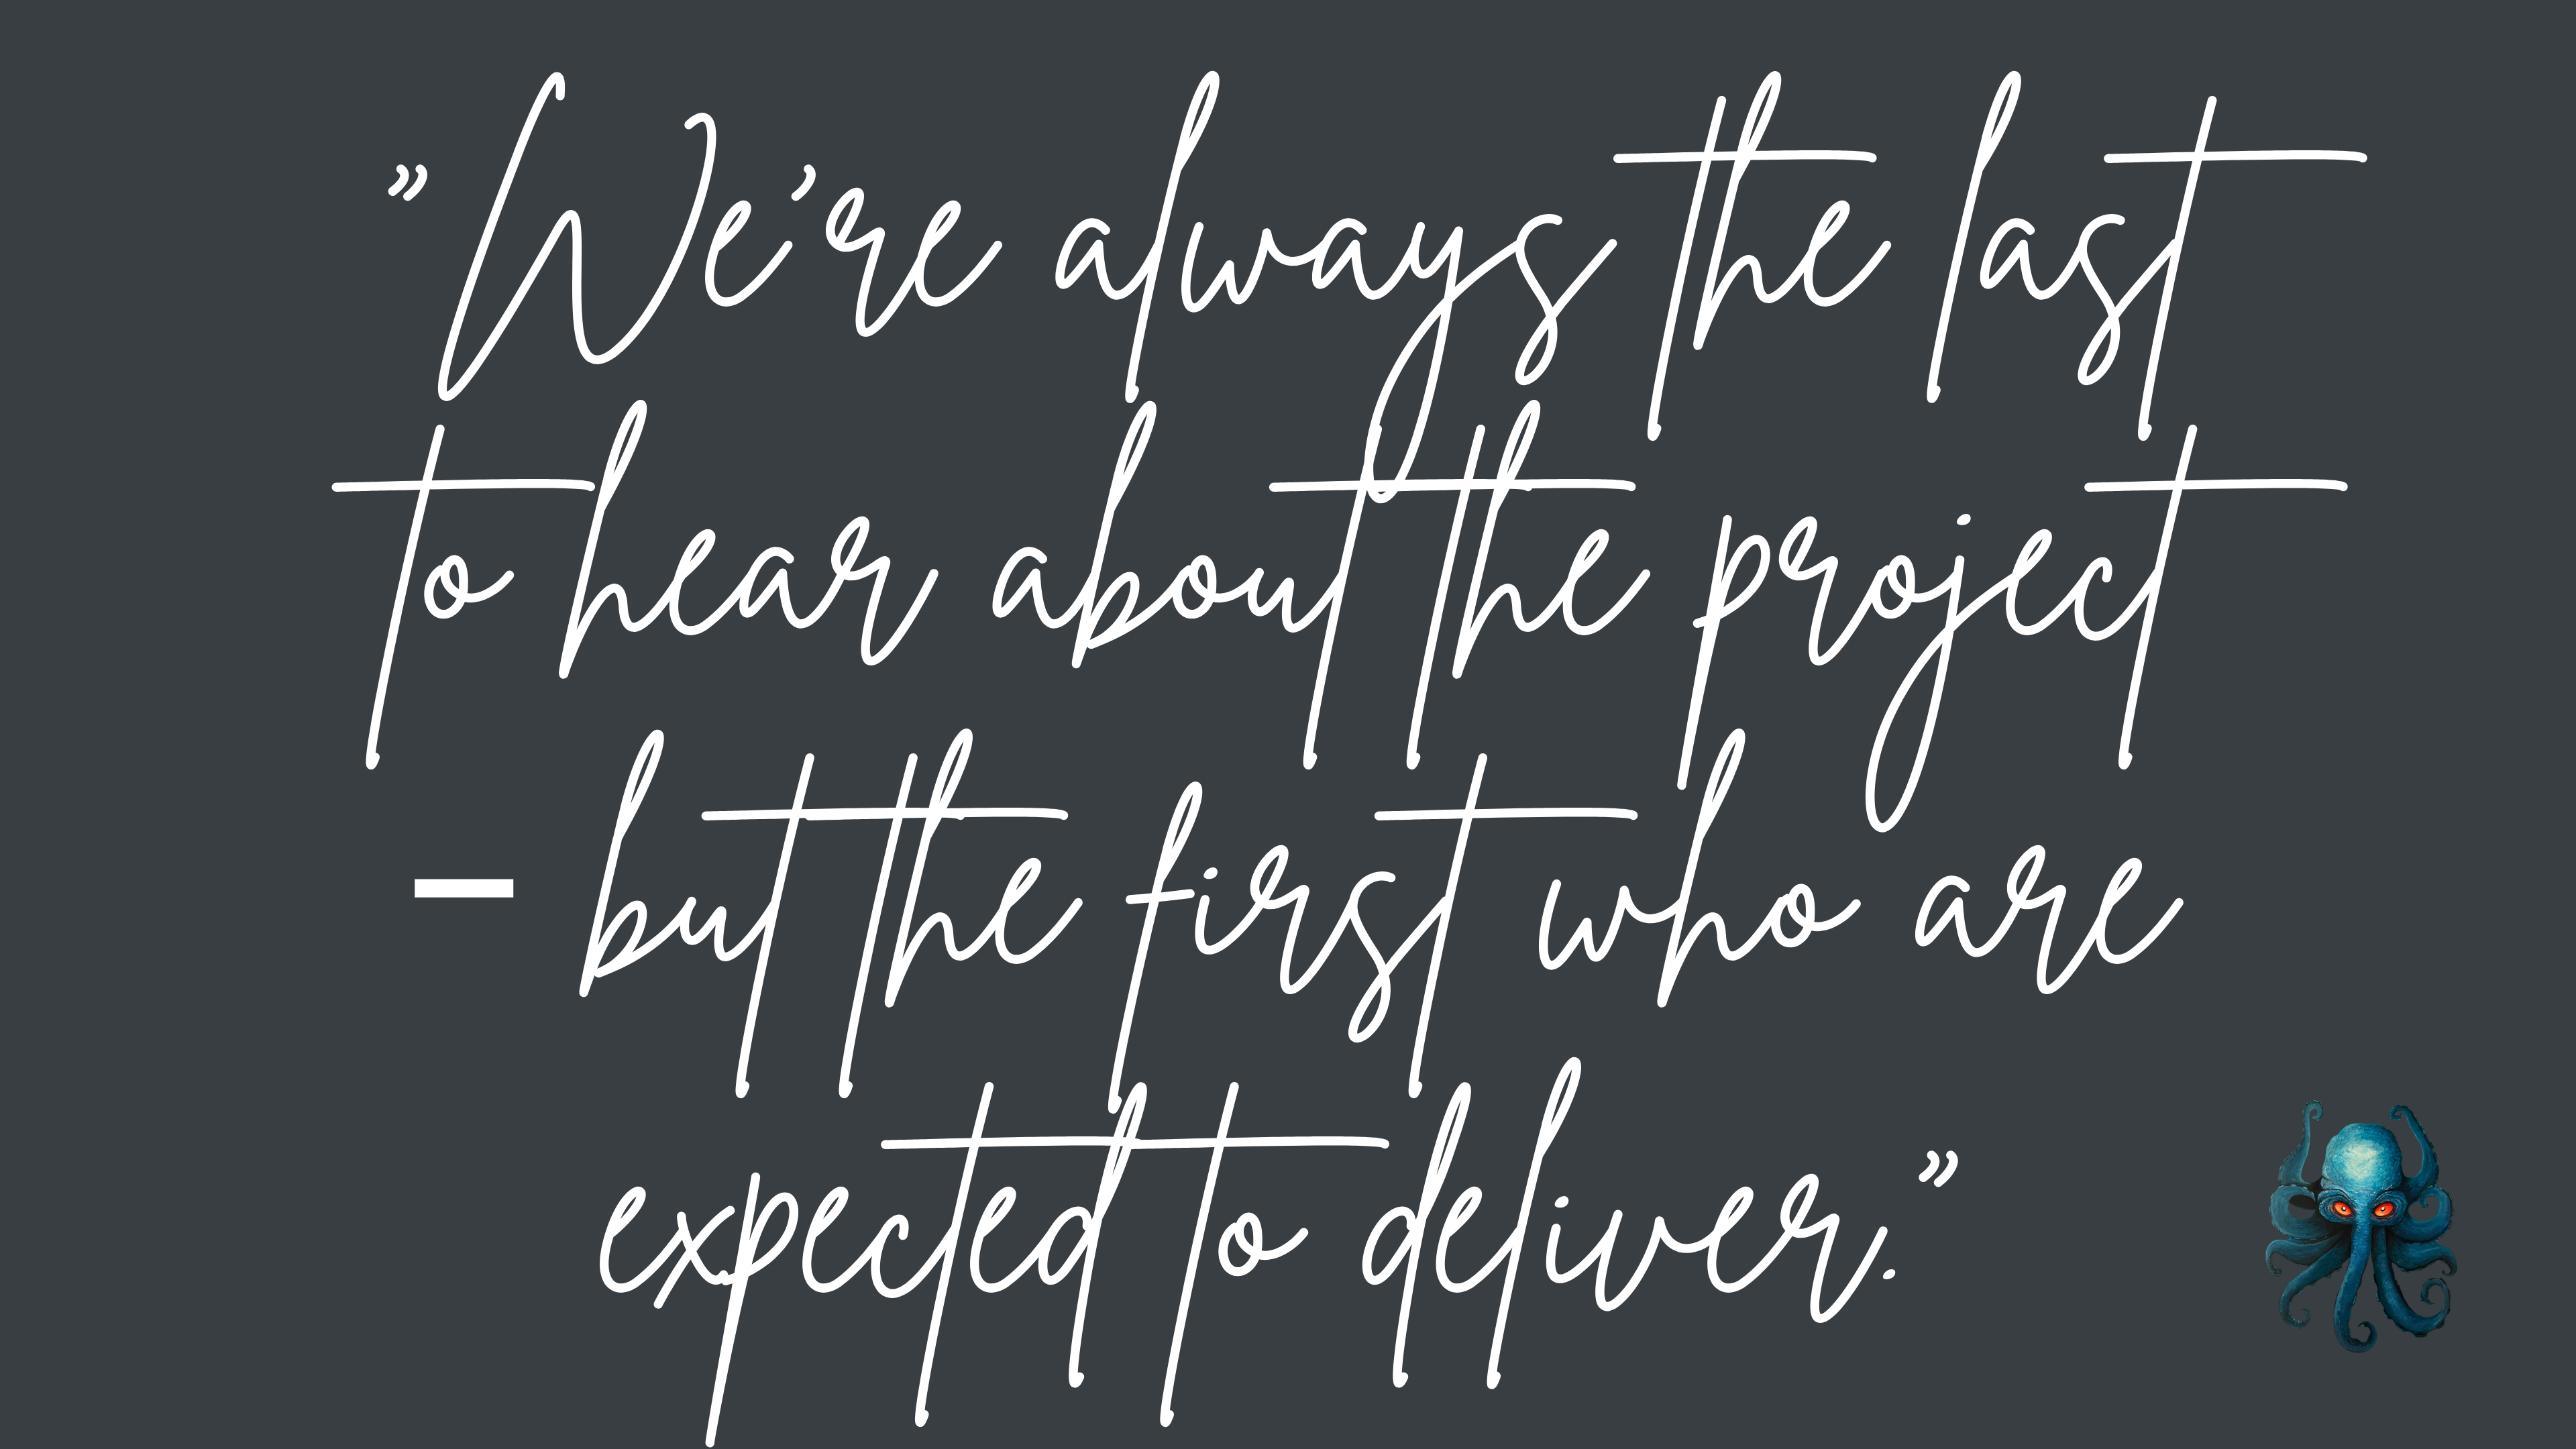 ”We’re always the last
to hear about the project
– but the first who are
expected to deliver.”